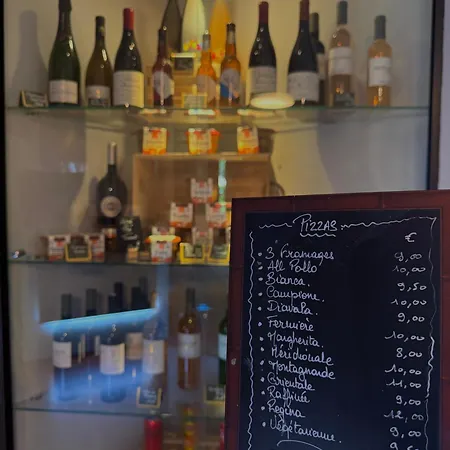 PIZZAS
€
• 3 Fromages 9,00
• All Pollo 10,00
• Bianca 9,50
• Campione 10,00
• Diavola 9,00
• Fermière 10,00
• Margherita 8,00
• Méridionale 10,00
• Montagnarde 11,00
• Orientale 9,00
• Raffinée 12,00
• Regina 9,00
• Végétarienne. 9,50